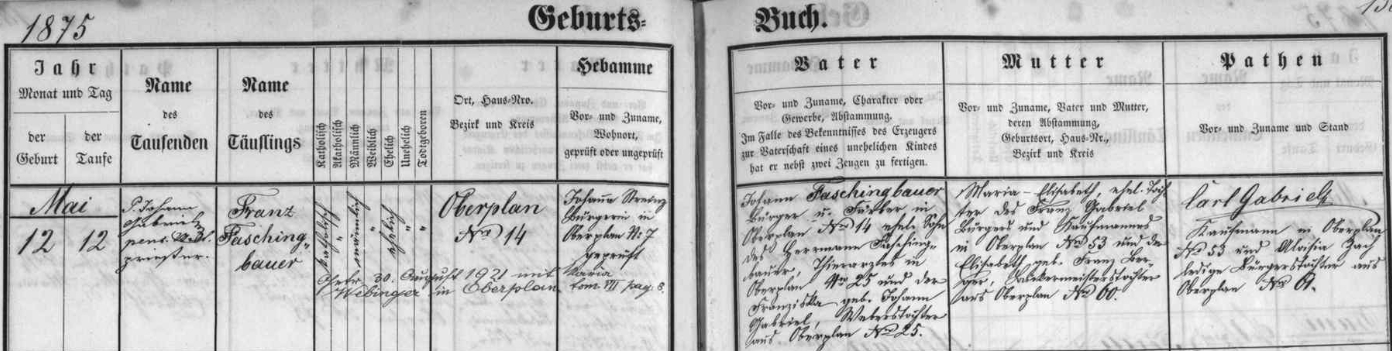 1875
Geburts-
Buch.
Jahr
Monat und Tag
der
Geburt
der
Taufe
Name
des
Taufenden
Name
des
Täuflings
Katholisch
Akatholisch
Männlich
Weiblich
Ehelich
Unehelich
Todtgeboren
Ort, Haus-Nro.
Bezirk und Kreis
Hebamme
Vor- und Zuname,
Wohnort,
geprüft oder ungeprüft
Vater
Vor- und Zuname, Charakter oder
Gewerbe, Abstammung.
Im Falle des Bekenntnisses des Erzeugers
zur Vaterschaft eines unehelichen Kindes
hat er nebst zwei Zeugen zu fertigen.
Mutter
Vor- und Zuname, Vater und Mutter,
deren Abstammung,
Geburtsort, Haus-Nr.,
Bezirk und Kreis
Pathen
Vor- und Zuname und Stand
Mai
12
12
P. Johann
Gabriel
priester.
Franz
Fasching-
bauer
katholisch
"
männlich
"
ehelich
"
"
Oberplan
No 14
Johanna
Bürgerin in
Oberplan No 7
geprüft
30. August 1921 mit Maria
Webinger in Oberplan tom VII pag 8.
Johann Faschingbauer
Bürger u. Färber in
Oberplan No 14 ehel. Sohn
des Hermann Fasching-
bauer, Thierarztes in
Oberplan No 25 und der
Franziska geb. Johann
Gabriel, Weberstochter
aus Oberplan No 25.
Maria Elisabeth, ehel. Toch-
ter des Franz Gabriel
Bürgers und Kaufmannes
in Oberplan No 53 und der
Elisabeth, geb. Franz
aus Oberplan No 60.
Carl Gabriel
Kaufmann in Oberplan
No 53 und Aloisia
ledige Bürgerstochter aus
Oberplan No 61.